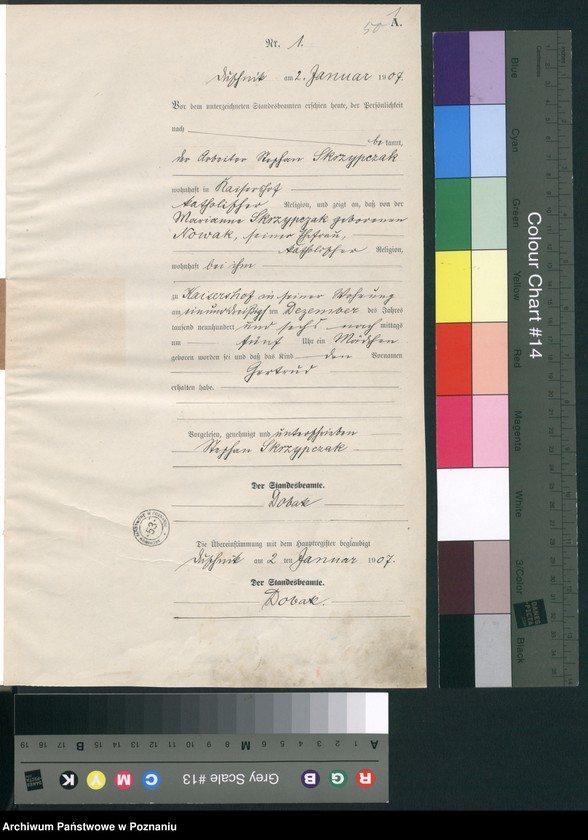 50
1
A.
Nr. 1.
Duschnik am 2. Januar 1907.
Vor dem unterzeichneten Standesbeamten erschien heute, der Persönlichkeit
nach bekannt,
der Arbeiter Stephan Skrzypczak
wohnhaft in Kaisershof
katholischer Religion, und zeigt an, daß von der
Marianna Skrzypczak geborenen
Nowak, seiner Ehefrau,
katholischer Religion,
wohnhaft bei ihm
zu Kaisershof in seiner Wohnung
am einunddreißigsten Dezember des Jahres
tausend neunhundert und sechs nachmittags
um fünf Uhr ein Mädchen
geboren worden sei und daß das Kind den Vornamen
Gertrud
erhalten habe.
Vorgelesen, genehmigt und unterschrieben
Stephan Skrzypczak
Der Standesbeamte.
Dobak
Die Übereinstimmung mit dem Hauptregister beglaubigt
Duschnik am 2 ten Januar 1907.
Der Standesbeamte.
Dobak.
53
Colour Chart #14
Blue
Cyan
Green
Yellow
Red
Magenta
White
3/Color
Black
Centimetres
DANES
PICTA
19 18 17 B 16 15 14 13 12 11 10 9 8 M 7 6 5 4 3 2 1 A
K Y M C Grey Scale #13 B G R
Archiwum Państwowe w Poznaniu